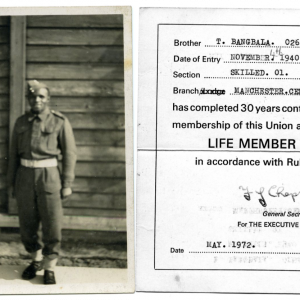 Brother T. BANGBALA. 026
Date of Entry NOVEMBER. 1940
Section SKILLED. 01.
Branch MANCHESTER.CEN
has completed 30 years cont
membership of this Union a
LIFE MEMBER
in accordance with Ru
General Secr
For THE EXECUTIVE
Date MAY. 1972.